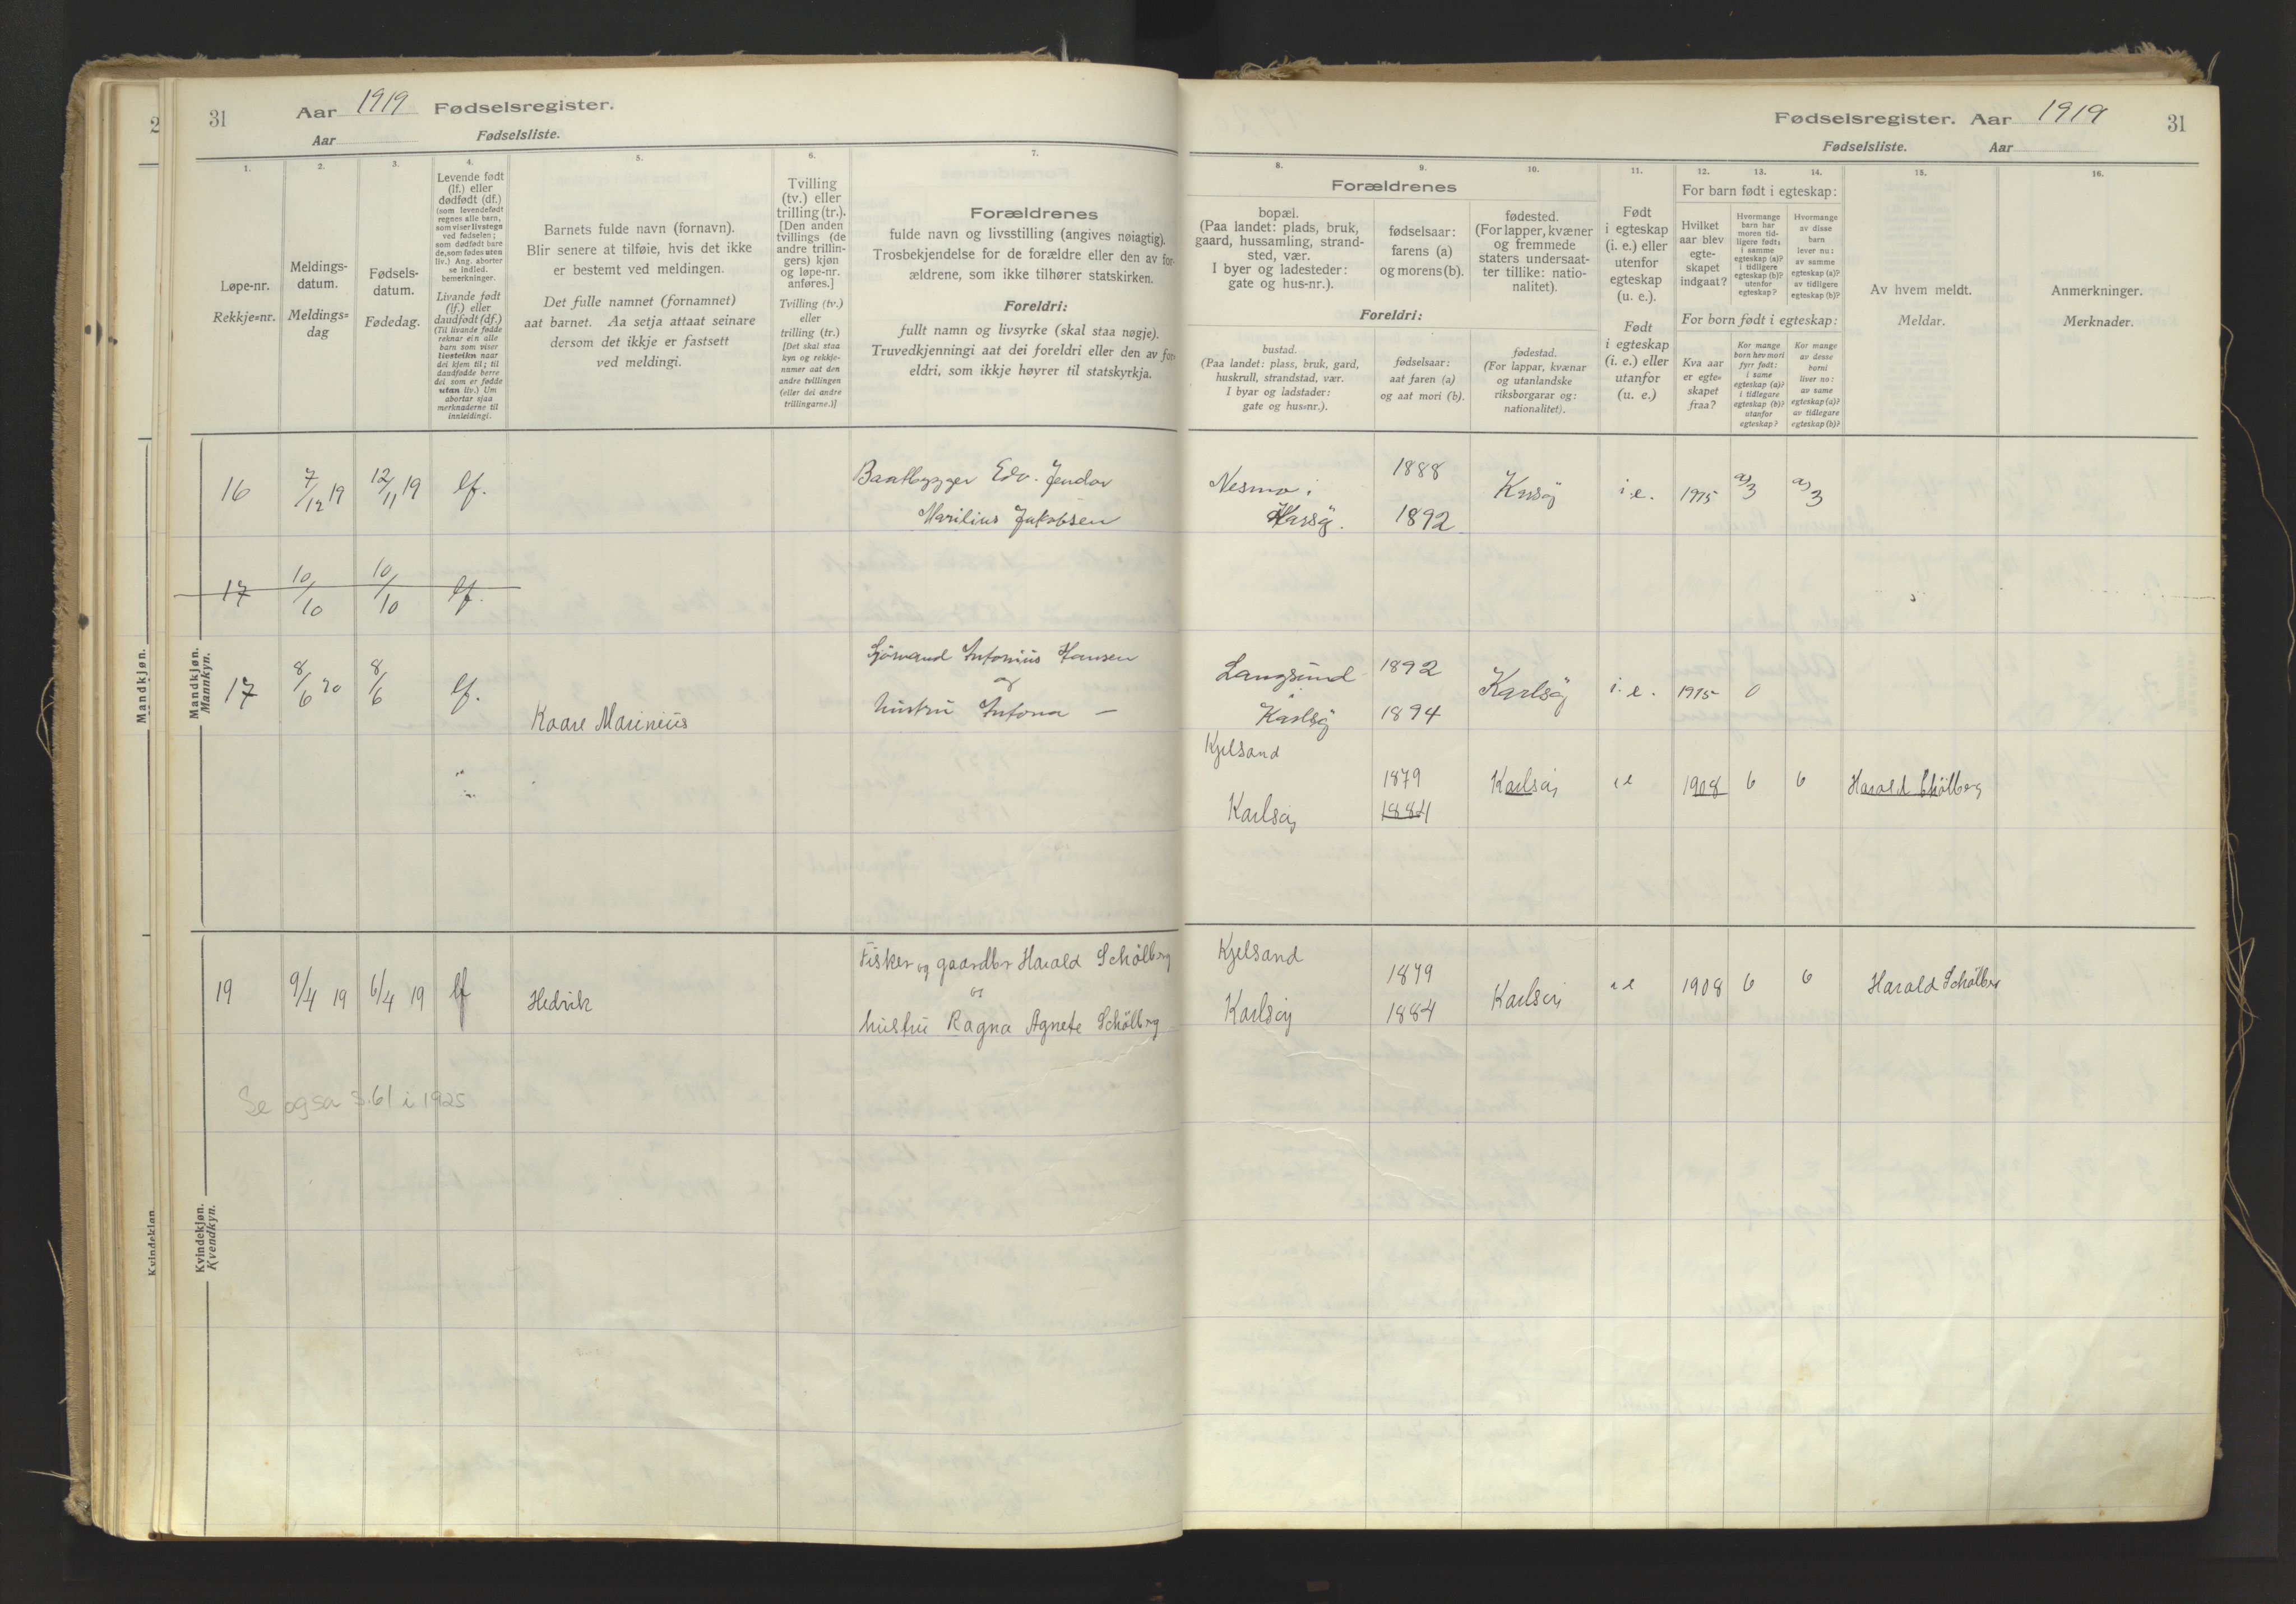 31 Aar 1919 Fødselsregister.
Aar Fødselsliste.
1. 2. 3. 4. 5. 6. 7.
Løpe-nr.
Rekkje=nr.
Meldings-
datum.
Meldings=
dag
Fødsels-
datum.
Fødedag.
Levende født
(lf.) eller
dødfødt (df.)
(som levendefødt
regnes alle barn,
som viser livstegn
ved fødselen;
som dødfødt bare
de, som fødes uten
liv.) Ang. aborter
se indled.
bemerkninger.
Livande født
(lf.) eller
daudfødt (df.)
(Til livande fødde
reknar ein alle
barn som viser
livsteikn naar
dei kjem til; til
daudfødde berre
dei som er fødde
utan liv.) Um
abortar sjaa
merknaderne til
innleidingi.
Barnets fulde navn (fornavn).
Blir senere at tilføie, hvis det ikke
er bestemt ved meldingen.
Det fulle namnet (fornamnet)
aat barnet. Aa setja attaat seinare
dersom det ikkje er fastsett
ved meldingi.
Tvilling
(tv.) eller
trilling (tr.).
[Den anden
tvillings (de
andre trillin-
gers) kjøn
og løpe-nr.
anføres.]
Tvilling (tv.)
eller
trilling (tr.)
[Det skal staa
kyn og rekkje-
numer aat den
andre tvillingen
(eller dei andre
trillingarne.)]
Forældrenes
fulde navn og livsstilling (angives nøiagtig).
Trosbekjendelse for de forældre eller den av for-
ældrene, som ikke tilhører statskirken.
Foreldri:
fullt namn og livsyrke (skal staa nøgje).
Truvedkjenningi aat dei foreldri eller den av for-
eldri, som ikkje høyrer til statskyrkja.
Mandkjøn.
Mandkjøn.
Mannkyn.
16 7/12 19 12/11 19 lf. Baatbygger Edv. Jendor
Marilius Jakobsen
17 10/10 10/10 lf.
17 8/6 20 8/6 lf. Kaare Marinius Sjømand Antonius Hansen
og
hustru Antona —
19 9/4 19 6/4 19 lf Hedvik Fisker og gaardbr Harald Schølberg
og
hustru Ragna Agnete Schølberg
Se også s. 61 i 1925
Kvindekjøn.
Kvindekjøn.
Kvendkyn.
Fødselsregister. Aar 1919 31
Fødselsliste. Aar
8. 9. 10. 11. 12. 13. 14. 15. 16.
Forældrenes
bopæl.
(Paa landet: plads, bruk,
gaard, hussamling, strand-
sted, vær.
I byer og ladesteder:
gate og hus-nr.).
fødselsaar:
farens (a)
og morens (b).
fødested.
(For lapper, kvæner
og fremmede
staters undersaat-
ter tillike: natio-
nalitet).
Foreldri:
bustad.
(Paa landet: plass, bruk, gard,
huskrull, strandstad, vær.
I byar og ladstader:
gate og hus=nr.).
fødselsaar:
aat faren (a)
og aat mori (b).
fødestad.
(For lappar, kvænar
og utanlandske
riksborgarar og:
nationalitet).
Født
i egteskap
(i. e.) eller
utenfor
egteskap
(u. e.).
Født
i egteskap
(i. e.) eller
utanfor
(u. e.)
For barn født i egteskap:
Hvilket
aar blev
egte-
skapet
indgaat?
Hvormange
barn har
moren tid-
ligere født:
i samme
egteskap (a)?
i tidligere
egteskap (b)?
utenfor
egteskap?
Hvormange
av disse
barn
lever nu:
av samme
egteskap (a)?
av tidligere
egteskap (b)?
For born født i egteskap:
Kva aar
er egte=
skapet
fraa?
Kor mange
born hev mori
fyrr født:
i same
egteskap (a)?
i tidlegare
egteskap (b)?
utanfor
egteskap?
Kor mange
av desse
borni
liver no:
av same
egteskap (a)?
av tidlegare
egteskap (b)?
Av hvem meldt.
Meldar.
Anmerkninger.
Merknader.
Nesmo i 1888 Karsøy i. e. 1915 a) 3 a) 3
Karsøy. 1892
Langsund 1892 Karlsøy i. e. 1915 0
Karlsøy 1894
Kjelsand
1879 Karlsøy i e 1908 6 6 Harald Schølberg
Karlsøy 1884
Kjelsand
1879 Karlsøy i e 1908 6 6 Harald Schølberg
Karlsøy 1884